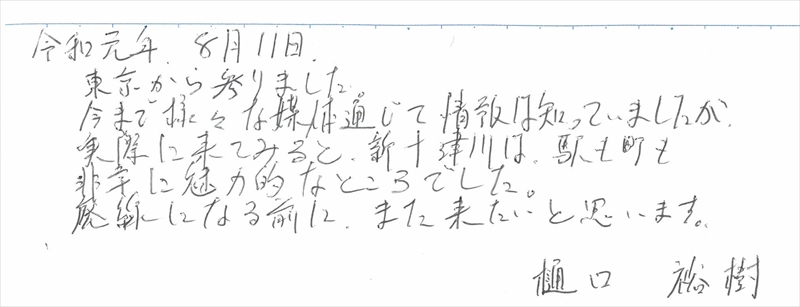 令和元年、8月11日、
東京から参りました。
今まで様々な媒体通じて情報は知っていましたが、
実際に来てみると、新十津川は、駅も町も
非常に魅力的なところでした。
廃線になる前に、また来たいと思います。
樋口 裕樹